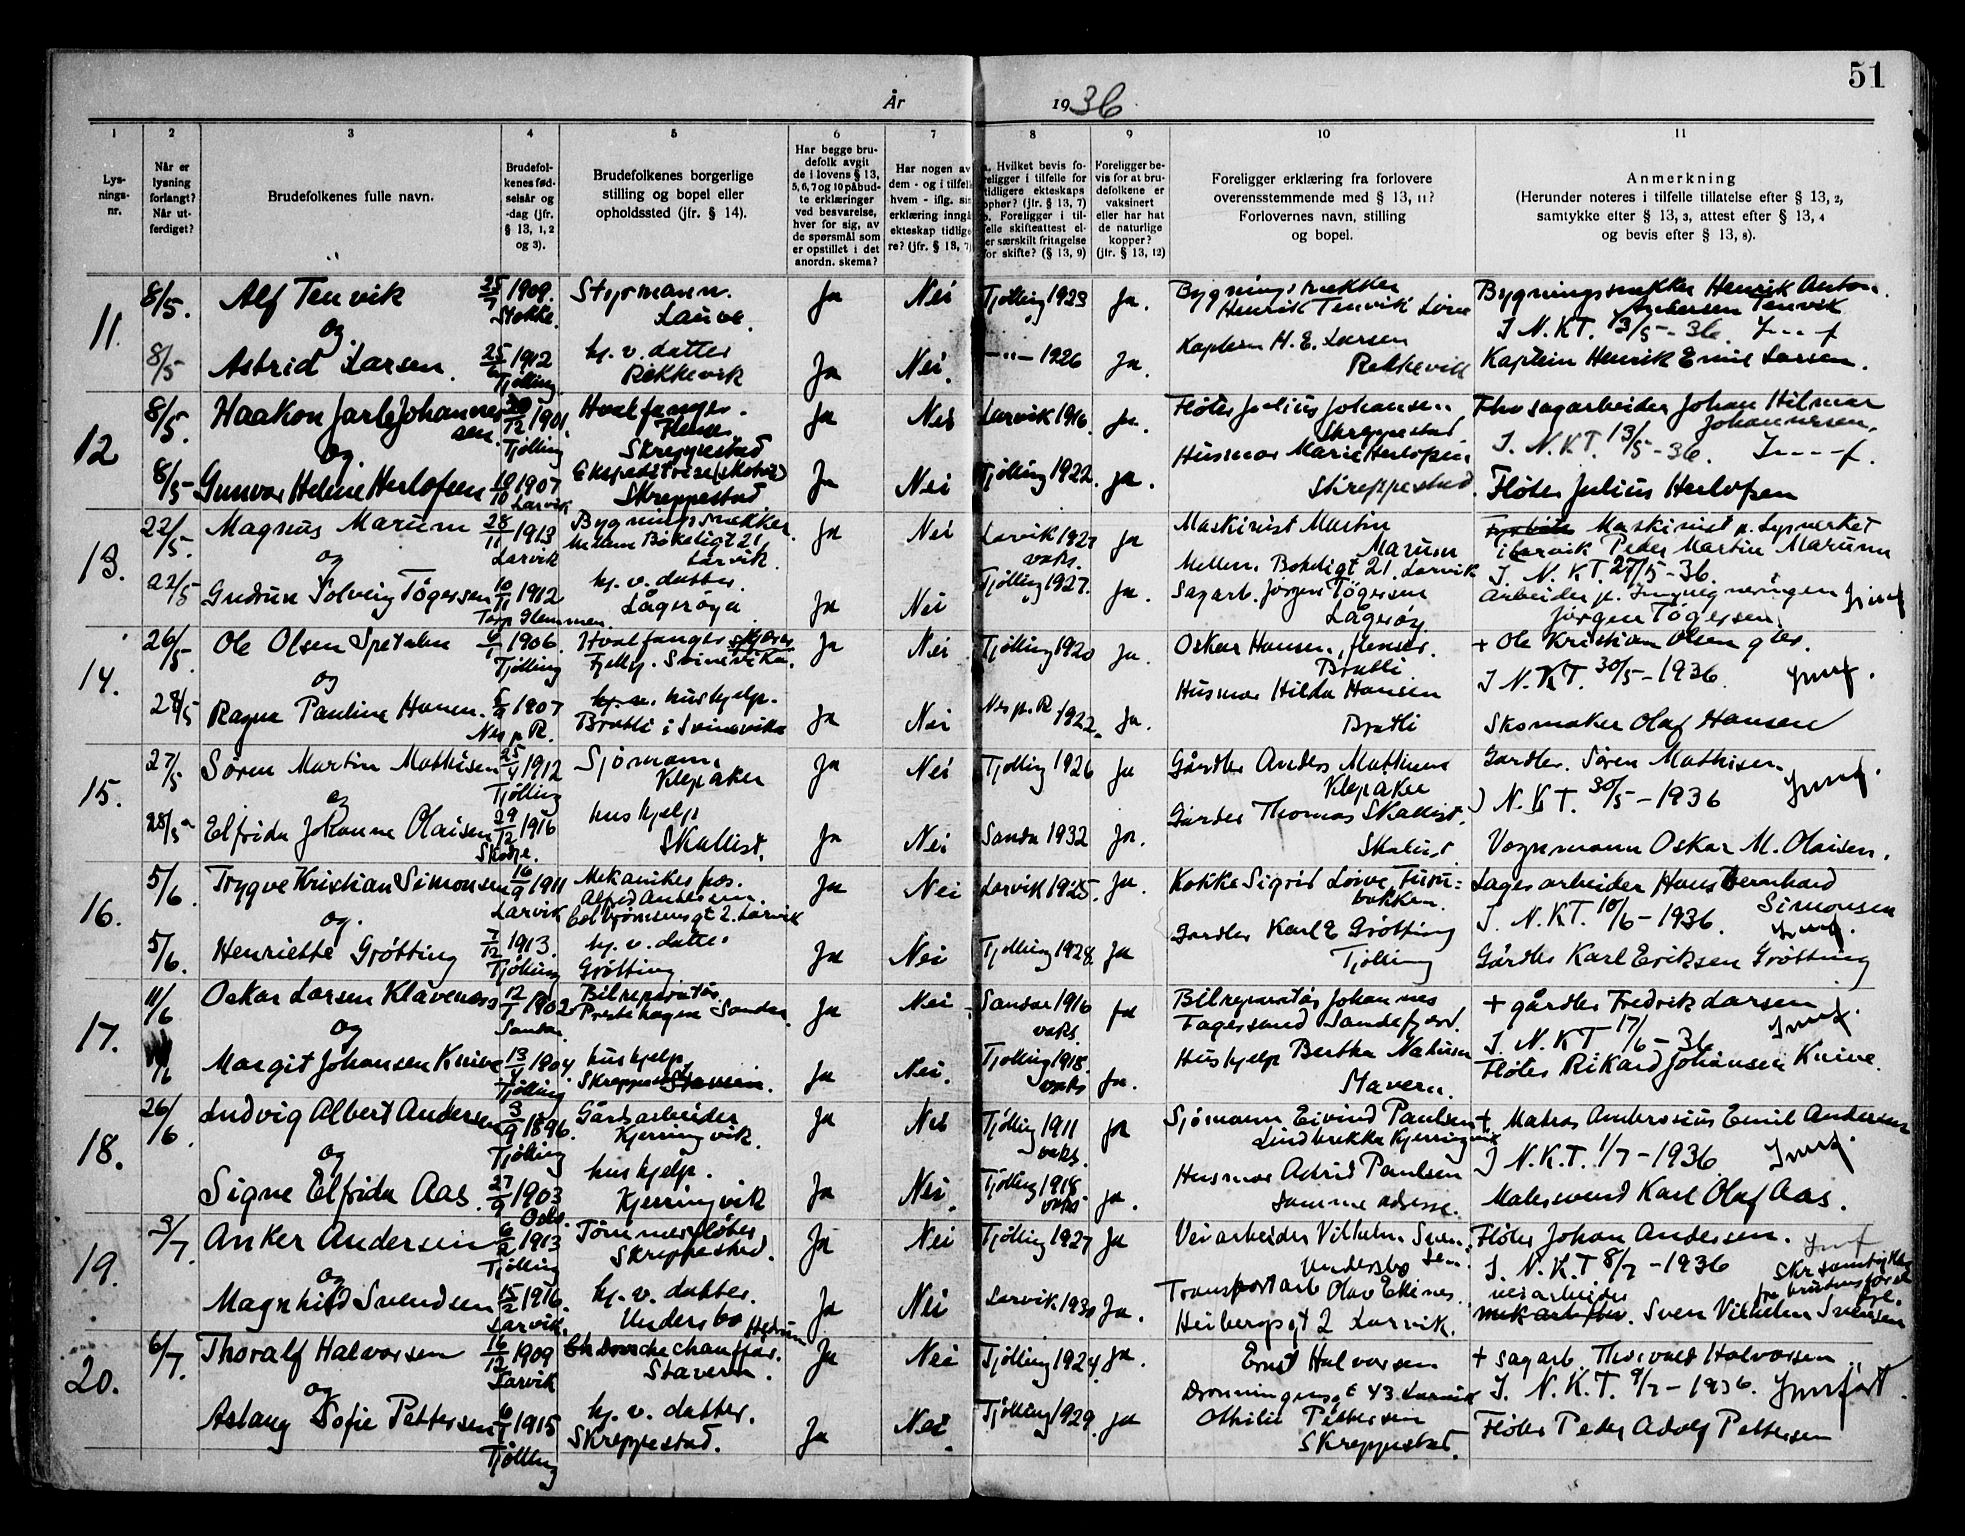 51
År 1936.
1 2 3 4 5 6 7 8 9 10 11
Lysningsnr.
Når er lysning forlangt? Når utferdiget?
Brudefolkenes fulle navn.
Brudefolkenes fødselsår og -dag (jfr. § 13, 1, 2 og 3).
Brudefolkenes borgerlige stilling og bopel eller opholdssted (jfr. § 14).
Har begge brudefolk avgit de i lovens § 13, 5, 6, 7 og 10 påbudte erklæringer ved besvarelse, hver for sig, av de spørsmål som er opstillet i det anordn. skema?
Har nogen av dem - og i tilfelle hvem - iflg. sin erklæring inngått ekteskap tidligere? (jfr. § 13, 7)
a. Hvilket bevis foreligger i tilfelle for tidligere ekteskaps ophør? (jfr. § 13, 7)
b. Foreligger i tilfelle skifteattest eller særskilt fritagelse for skifte? (§ 13, 9)
Foreligger bevis for at brudefolkene er vaksinert eller har hat de naturlige kopper? (jfr. § 13, 12)
Foreligger erklæring fra forlovere overensstemmende med § 13, 11? Forlovernes navn, stilling og bopel.
Anmerkning
(Herunder noteres i tilfelle tillatelse efter § 13, 2, samtykke efter § 13, 3, attest efter § 13, 4 og bevis efter § 13, 8).
11. 8/5. Alf Tenvik 25/7 1909. Stokke. Styrmann. Lauve. Ja Nei Tjølling 1923 Ja. Bygningssnekker Henrik Tenvik Bygningssnekker Henrik Anton Andersen Tenvik
og I N.K.T. 13/5-36.
8/5 Astrid Larsen. 25/6 1912 Tjølling hj. v. datter Rekkevik Ja Nei. —"— 1926 Ja. Kaptein H. E. Larsen Rekkevik Kaptein Henrik Emil Larsen.
12 8/5. Haakon Jarle Johannessen. /12 1901. Tjølling Hvalfanger. Skreppestad Ja Nei Larvik 1916. Ja. Fløter Julius Johansen Skreppestad sagarbeider Johan Hilmar Johannessen.
og. I. N.K.T. 13/5-36.
8/5 Gunvor Helene Herlofsen /10 1907 Larvik Ekspeditrise Skreppestad Ja Nei Tjølling 1922. ja. Husmor Marie Herlofsen Skreppestad. Fløter Julius Herlofsen
13. 22/5. Magnus Marum 28/11 1913 Larvik Bygningssnekker. Mellem Bøkeligt 21. Larvik. Ja Nei Larvik 1927 vaks. Ja Maskinist Martin Marum Mellem Bøkeligt 21. Larvik Maskinist p. Lysverket i Larvik Peder Martin Marum
og I. N. K.T. 27/5-36.
22/5 Gudrun Solveig Tøgersen 10/11 1912 Torp Glemmen. hj. v. datter. Lågerøya Ja Nei Tjølling 1927. Ja. Sagarb. Jørgen Tøgersen Lågerøy Arbeider p. Impregneringen Jørgen Tøgersen.
14. 26/5. Ole Olsen Spetalen 6/1 1906. Tjølling Hvalfanger Ja Nei Tjølling 1920 Ja. Oskar Hansen, flenser. Bratli + Ole Kristian Olsen
og I N.K.T. 30/5-1936.
28/5 Ragna Pauline Hansen. 5/9 1907 Nes p R. hushjelp. Bratli i Svinevika Ja Nei Nes p. R. 1922. Ja. Husmor Hilda Hansen Bratli Skomaker Olaf Hansen
15. 27/5 Søren Martin Mathisen 25/4 1912 Tjølling Sjømann. Klepaker Ja Nei Tjølling 1926 Ja Gårdbr Anders Mathisen Klepaker Gardbr. Søren Mathisen.
og I N.K.T. 30/5-1936
28/5 Elfrida Johanne Olaisen 29/12 1916 hushjelp Skallist. Ja Nei Sandar 1932 Ja. Gårdbr Thomas Skallist. Skallist. Vognmann Oskar M. Olaisen.
16. 5/6. Trygve Kristian Simonsen 16/9 1911 Larvik Mekaniker hos. Alf Andersen. Colbjørnsensgt 2. Larvik Ja Nei Larvik 1925. Ja. Kokke Sigrid Furubakken. Lagerarbeider Hans Bernhard Simonsen
og. I. N.K.T. 10/6-1936.
5/6. Henriette Grøtting 7/12 1913. Tjølling hj. v. datter Grøtting Ja Nei Tjølling 1928. Ja Gardbr Karl E Grøtting Tjølling Gårdbr Karl Eriksen Grøtting
17. 11/6 Oskar Larsen Klåvenæss 12/1 1902 Sandar Bilreparatør Prestehagen Sandar. Ja Nei - Sandar 1916 vaks. ja Bilreparatør Johannes Fagersand Sandefjord. + gårdbr Fredrik Larsen
og I. N.K.T 17/6-36
11/6 Margit Johansen Kuine 13/4 1904 Tjølling hushjelp Skreppestad Ja Nei. Tjølling 1918. vaks Ja. Hushjelp Bertha Stavern. Fløter Rikard Johansen Kuine.
18. 26/6. Ludvig Albert Andersen 3/9 1896. Tjølling Gårdsarbeider Kjerringvik. Ja Nei Tjølling 1911 vaks. Ja Sjømann Eivind Paulsen Lindbrekka Kjerringvik + Matros Ambrosius Emil Andersen
og I N.K.T. 1/7-1936.
Signe Elfrida Aas. 27/9 1903 Oslo. hushjelp. Kjerringvik Ja Nei. Tjølling 1918 vaks Ja. Husmor Astrid Paulsen samme adresse. Malersvend Karl Olaf Aas.
19. 3/7. Anker Andersen 6/2 1913 Tjølling Tømmerfløter Skreppestad. Ja Nei Tjølling 1927 Ja Veiarbeider Vilhelm Svensen. Undersbo Fløter Johan Andersen.
og I. N.K.T 8/7-1936
Magnhild Svendsen 15/2 1916. Larvik. hj. v. datter. Undersbo Hedrum Ja Nei Larvik 1930 Ja. Transportarb Olav Heibergsgt 2 Larvik. veiarbeider Sven Vilhelm Svensen
20. 6/7. Thoralf Halvorsen 16/12 1909 Larvik Drosjechauffør. Stavern. Ja Nei Tjølling 1924. Ja. Ernst Halvorsen Dronningensgt 43. Larvik + sagarb. Thorvald Halvorsen
og I. N.K.T. 9/7-1936.
Aslaug Sofie Pettersen 6/1 1915 Tjølling hj. v. datter. Skreppestad. Ja Nei. Tjølling 1929. ja Othilie Pettersen Skreppestad. Fløter Peder Adolf Pettersen